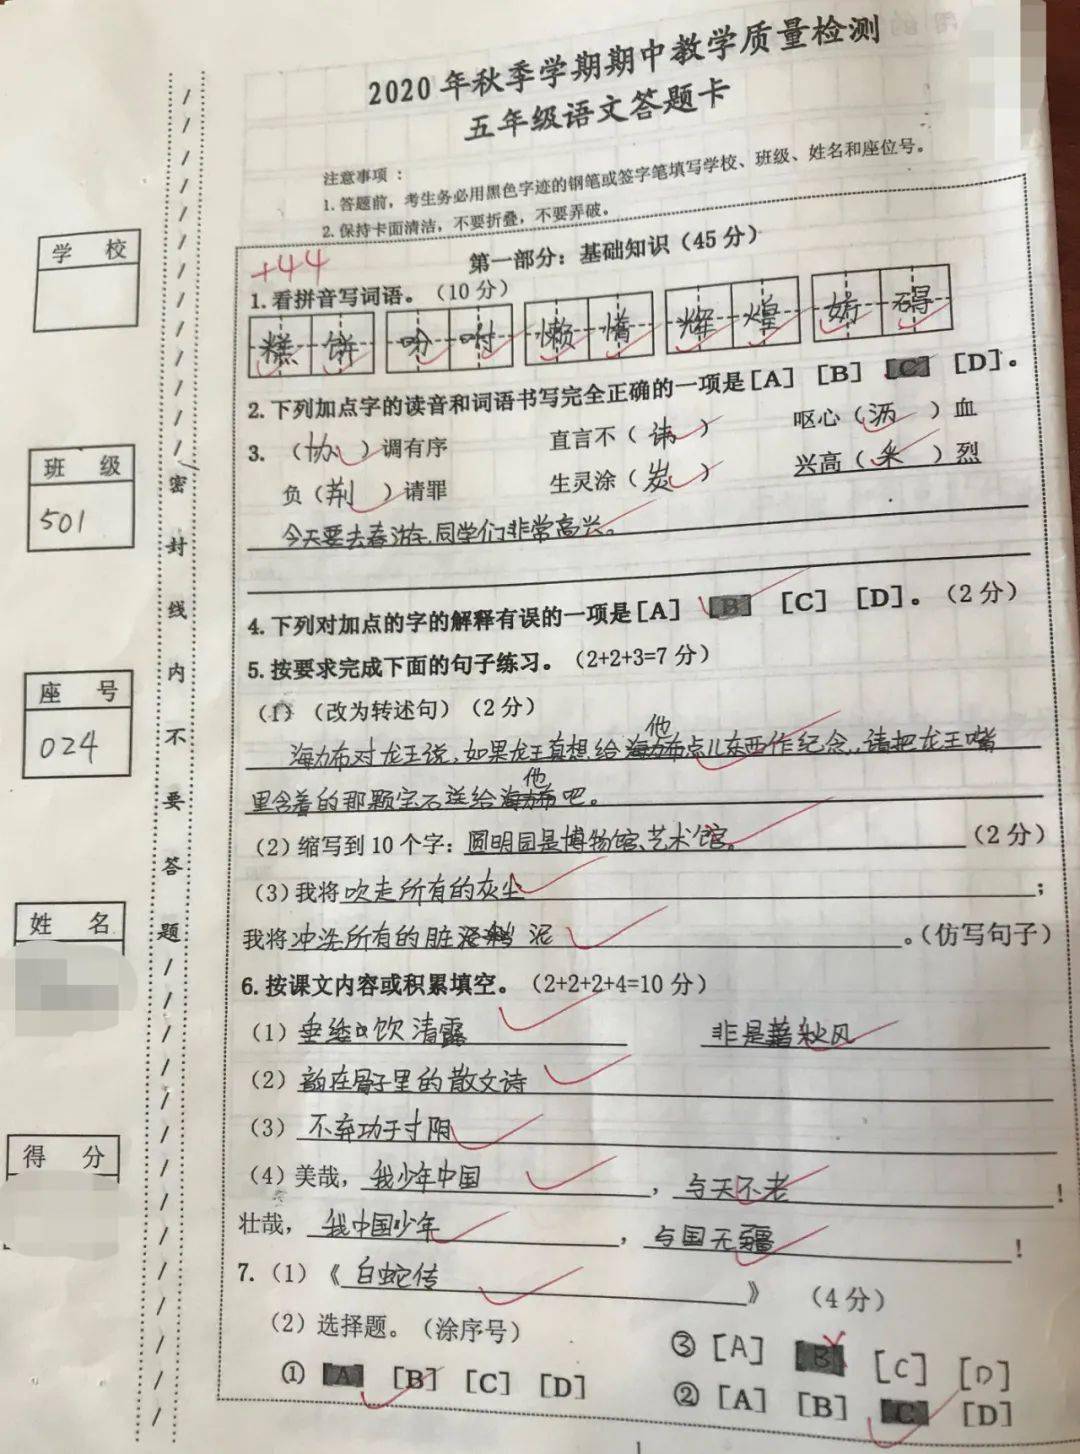 2020年秋季学期期中教学质量检测
五年级语文答题卡
注意事项：
1.答题前，考生务必用黑色字迹的钢笔或签字笔填写学校、班级、姓名和座位号。
2.保持卡面清洁，不要折叠，不要弄破。
学 校
班 级
501
座 号
024
姓 名
得 分
密封线内不要答题
+44
第一部分：基础知识（45分）
1.看拼音写词语。（10分）
糕饼 吩咐 懒惰 辉煌 妨碍
2.下列加点字的读音和词语书写完全正确的一项是[A] [B] [C] [D]。
3.（协）调有序 直言不（讳） 呕心（沥）血
负（荆）请罪 生灵涂（炭） 兴高（采）烈
今天要去春游,同学们非常高兴。
4.下列对加点的字的解释有误的一项是[A] [B] [C] [D]。（2分）
5.按要求完成下面的句子练习。（2+2+3=7分）
（1）（改为转述句）（2分）
他
海力布对龙王说,如果龙王真想给海力布点儿东西作纪念,请把龙王嘴
他
里含着的那颗宝石送给海力布吧。
（2）缩写到10个字：圆明园是博物馆、艺术馆。（2分）
（3）我将吹走所有的灰尘；
我将冲洗所有的脏 泥。（仿写句子）
6.按课文内容或积累填空。（2+2+2+4=10分）
（1）垂緌饮清露 非是藉秋风
（2）韵在骨子里的散文诗
（3）不弃功于寸阴
（4）美哉，我少年中国，与天不老！
壮哉，我中国少年，与国无疆！
7.（1）《白蛇传》（4分）
（2）选择题。（涂序号）
① [A] [B] [C] [D]
③ [A] [B] [C] [D]
② [A] [B] [C] [D]
1